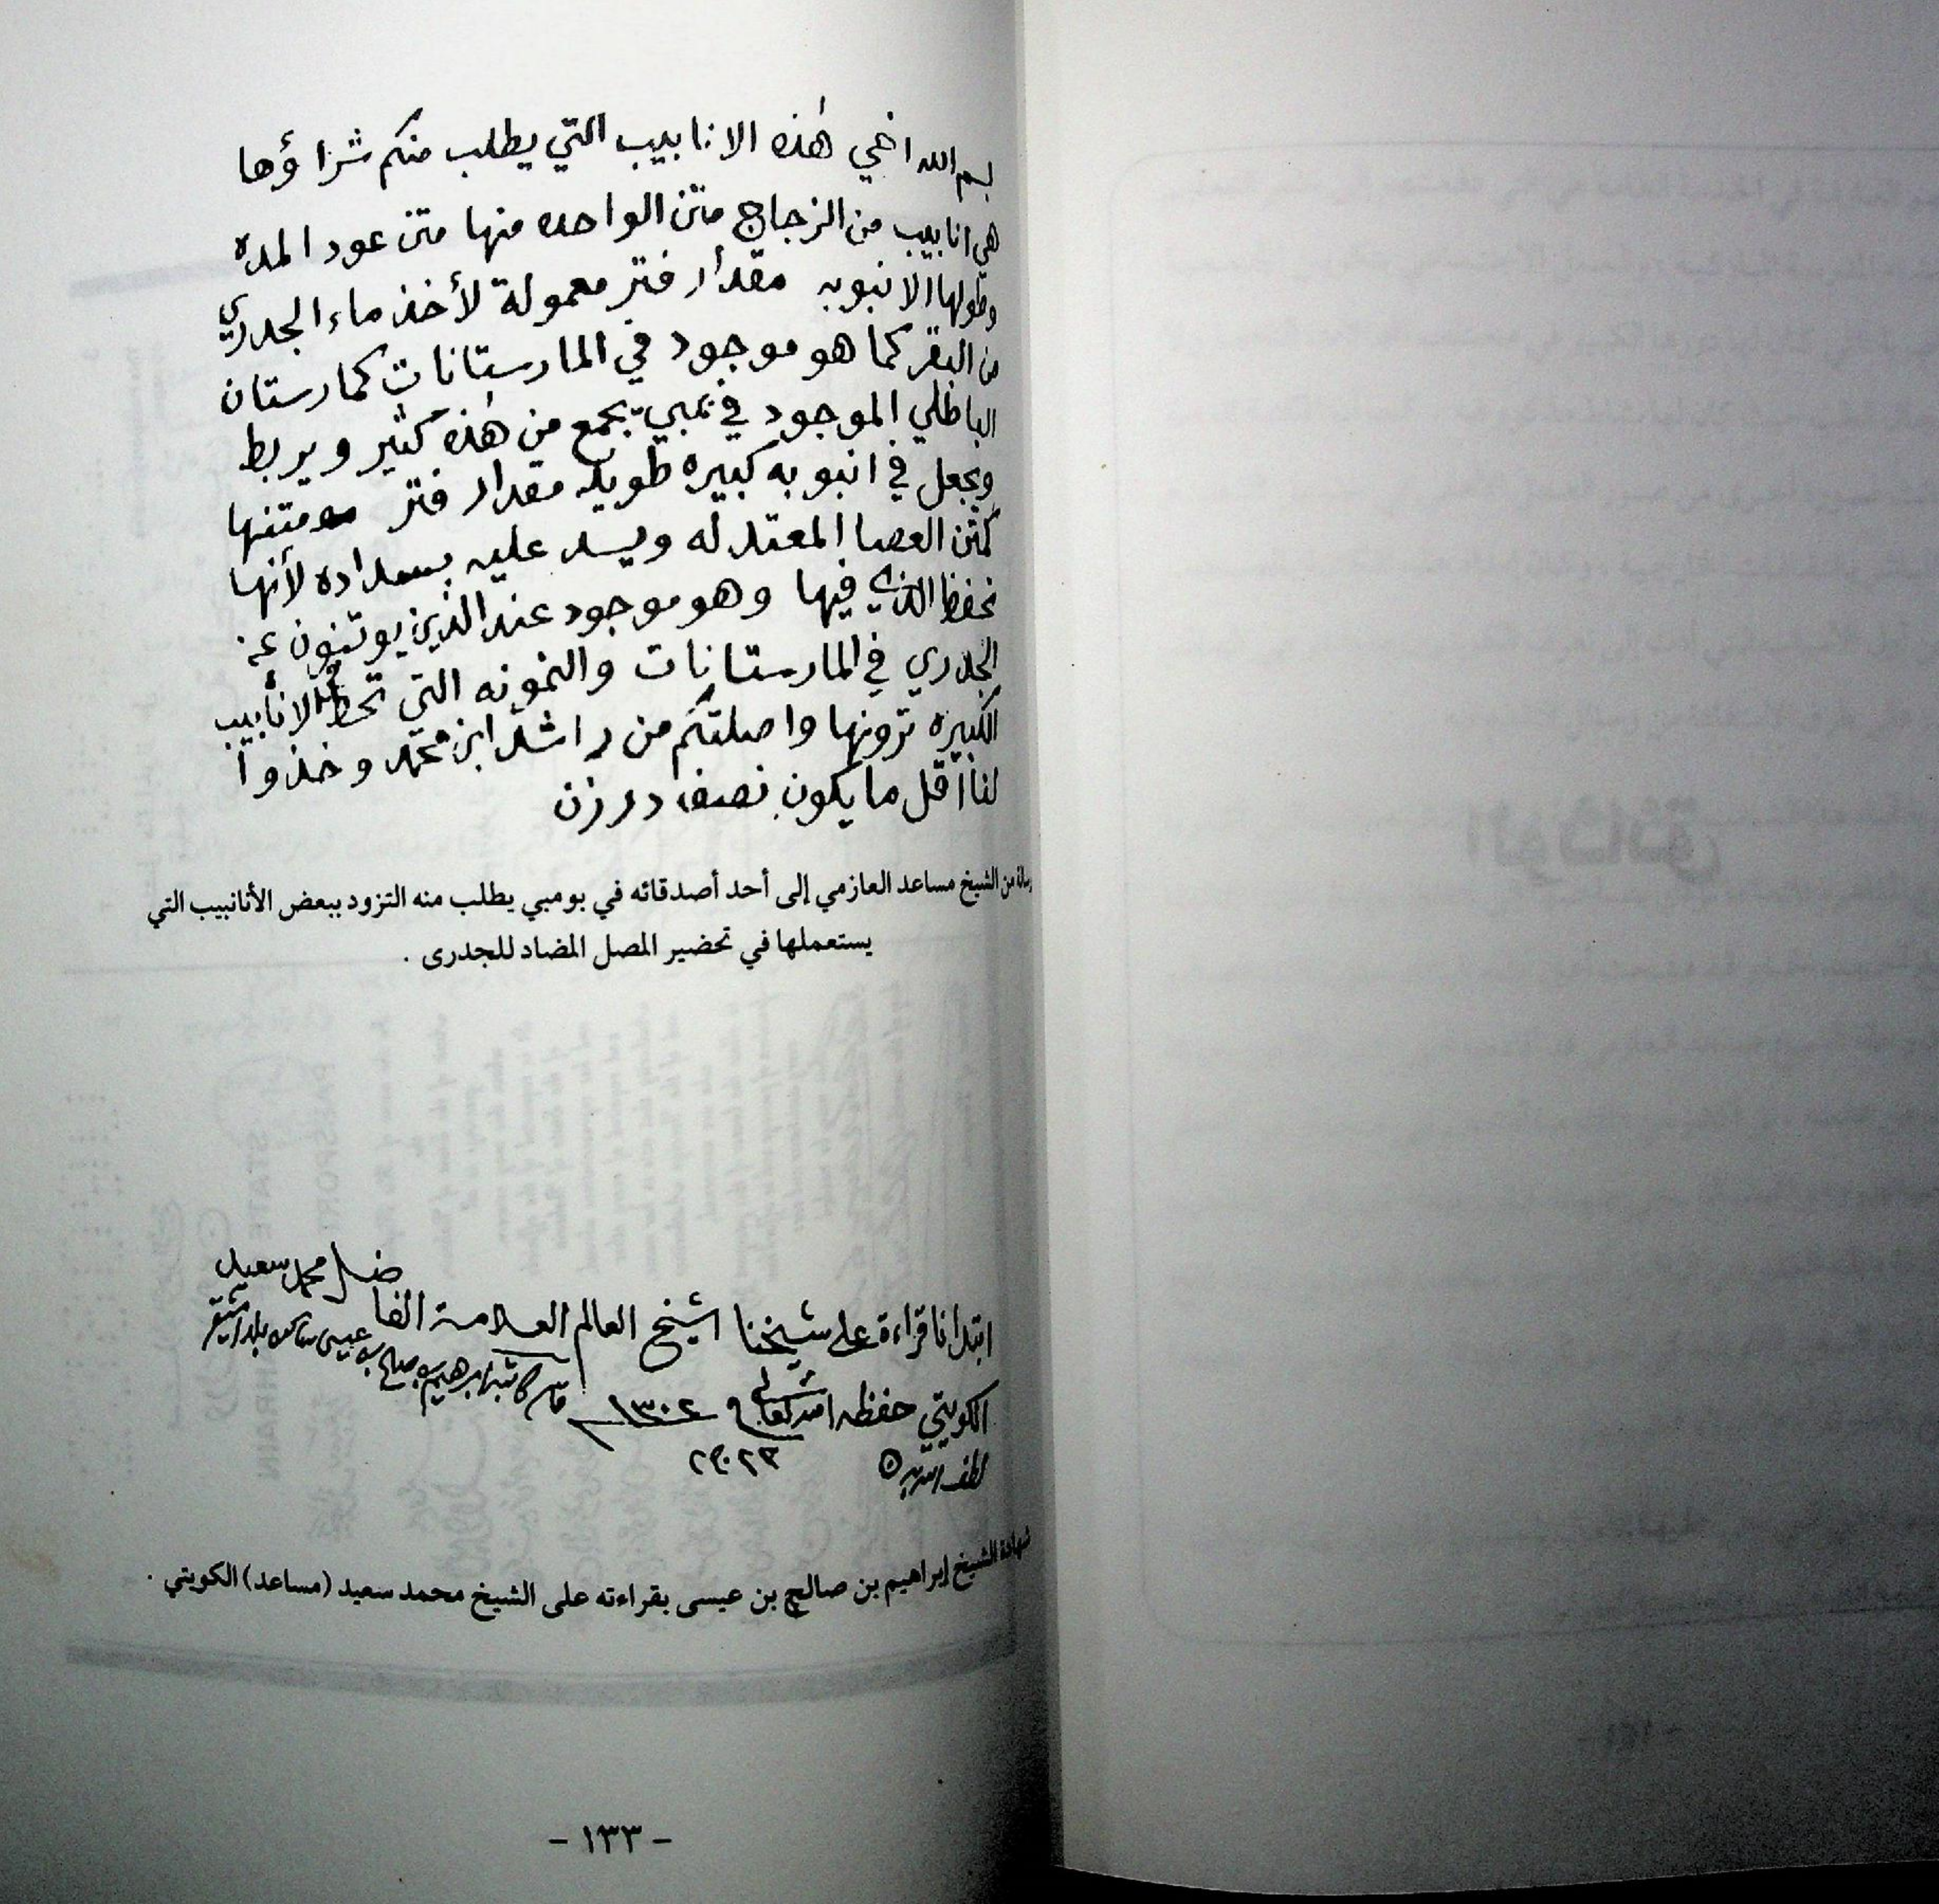 بسم الله اخي هٰذه الانابيب التي يطلب منكم شراؤها
هي انابيب من الزجاج متن الواحده منها متن عود المده
وطولها الانبوبه مقدار فتر معمولة لأخذ ماء الجدري
من البقر كما هو موجود في المارستانات كمارستان
الباطلي الموجود في بمبي يجمع من هٰذه كثير ويربط
ويجعل في انبوبه كبيره طويله مقدار فتر ومتنها
كمتن العصا المعتدله ويسد عليه بسداده لأنها
تحفظ الذي فيها وهو موجود عند الذين يوتنون عن
الجدري في المارستانات والنمونه التي تحط الانابيب
الكبيره ترونها واصلتكم من راشد ابن محمد وخذوا
لنا اقل ما يكون نصف درزن
رسالة من الشيخ مساعد العازمي إلى أحد أصدقائه في بومبي يطلب منه التزود ببعض الأنانبيب التي
يستعملها في تحضير المصل المضاد للجدرى .
ابتدانا قراءة على شيخنا الشيخ العالم العلامة الفاضل محمد سعيد
الكويتي حفظه الله تعالى ١٣٠٢
قاله كاتبه ابرهيم بن صالح بن عيسى
لطف الله به
شهادة الشيخ إبراهيم بن صالح بن عيسى بقراءته على الشيخ محمد سعيد (مساعد) الكويتي .
- ١٣٣ -
الوثائق